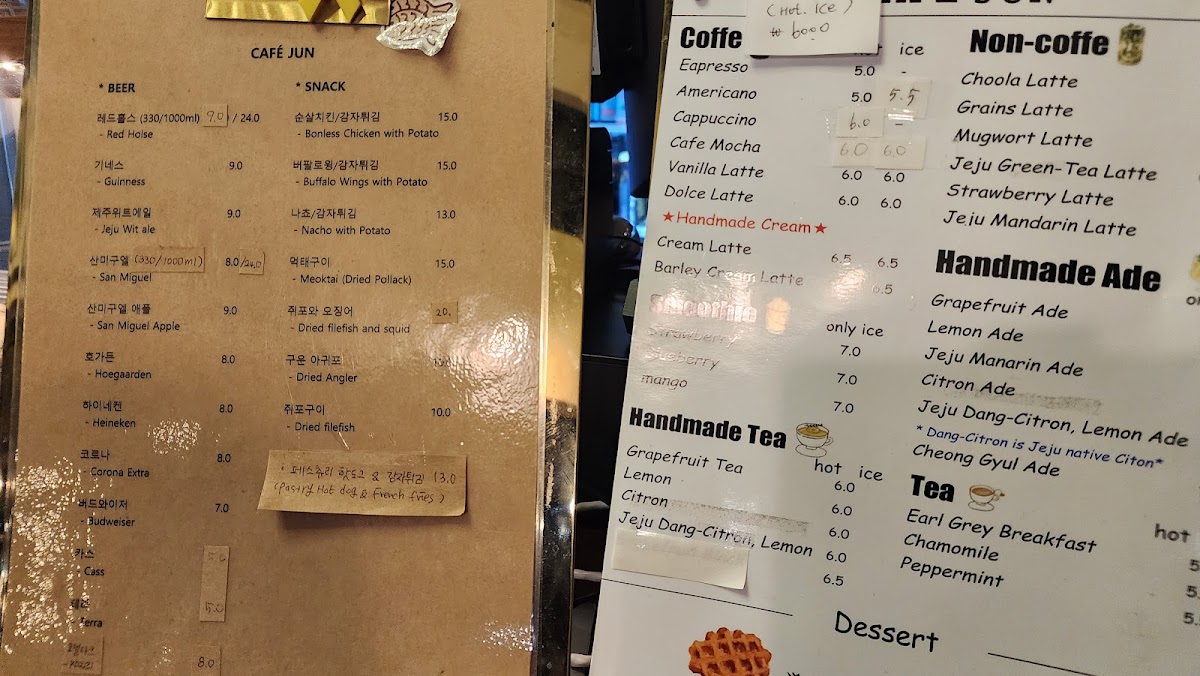 CAFÉ JUN
* BEER
레드홀스 (330/1000ml) 9.0 / 24.0
- Red Hoise
기네스 9.0
- Guinness
제주위트에일 9.0
- Jeju Wit ale
산미구엘 (330/1000ml) 8.0/24.0
- San Miguel
산미구엘 애플 9.0
- San Miguel Apple
호가든 8.0
- Hoegaarden
하이네켄 8.0
- Heineken
코로나 8.0
- Corona Extra
버드와이저 7.0
- Budweiser
카스 5.0
- Cass
테라 5.0
- Terra
8.0
* SNACK
순살치킨/감자튀김 15.0
- Bonless Chicken with Potato
버팔로윙/감자튀김 15.0
- Buffalo Wings with Potato
나쵸/감자튀김 13.0
- Nacho with Potato
먹태구이 15.0
- Meoktai (Dried Pollack)
쥐포와 오징어 20.
- Dried filefish and squid
구운 아귀포
- Dried Angler
쥐포구이 10.0
- Dried filefish
페스츄리 핫도그 & 감자튀김 13.0
(Pastry Hot dog & French fries)
(Hot. Ice)
₩ 6000
Coffe ice
Eapresso 5.0 -
Americano 5.0 5.5
Cappuccino 6.0 -
Cafe Mocha 6.0 6.0
Vanilla Latte 6.0 6.0
Dolce Latte 6.0 6.0
★Handmade Cream★
Cream Latte 6.5 6.5
Barley Cream Latte 6.5
Smoothie only ice
Strawberry 7.0
Blueberry 7.0
mango 7.0
Handmade Tea hot ice
Grapefruit Tea 6.0
Lemon 6.0
Citron 6.0
Jeju Dang-Citron, Lemon 6.0
6.5
Non-coffe
Choola Latte
Grains Latte
Mugwort Latte
Jeju Green-Tea Latte
Strawberry Latte
Jeju Mandarin Latte
Handmade Ade
Grapefruit Ade
Lemon Ade
Jeju Manarin Ade
Citron Ade
Jeju Dang-Citron, Lemon Ade
* Dang-Citron is Jeju native Citon*
Cheong Gyul Ade
Tea hot
Earl Grey Breakfast
Chamomile
Peppermint
Dessert